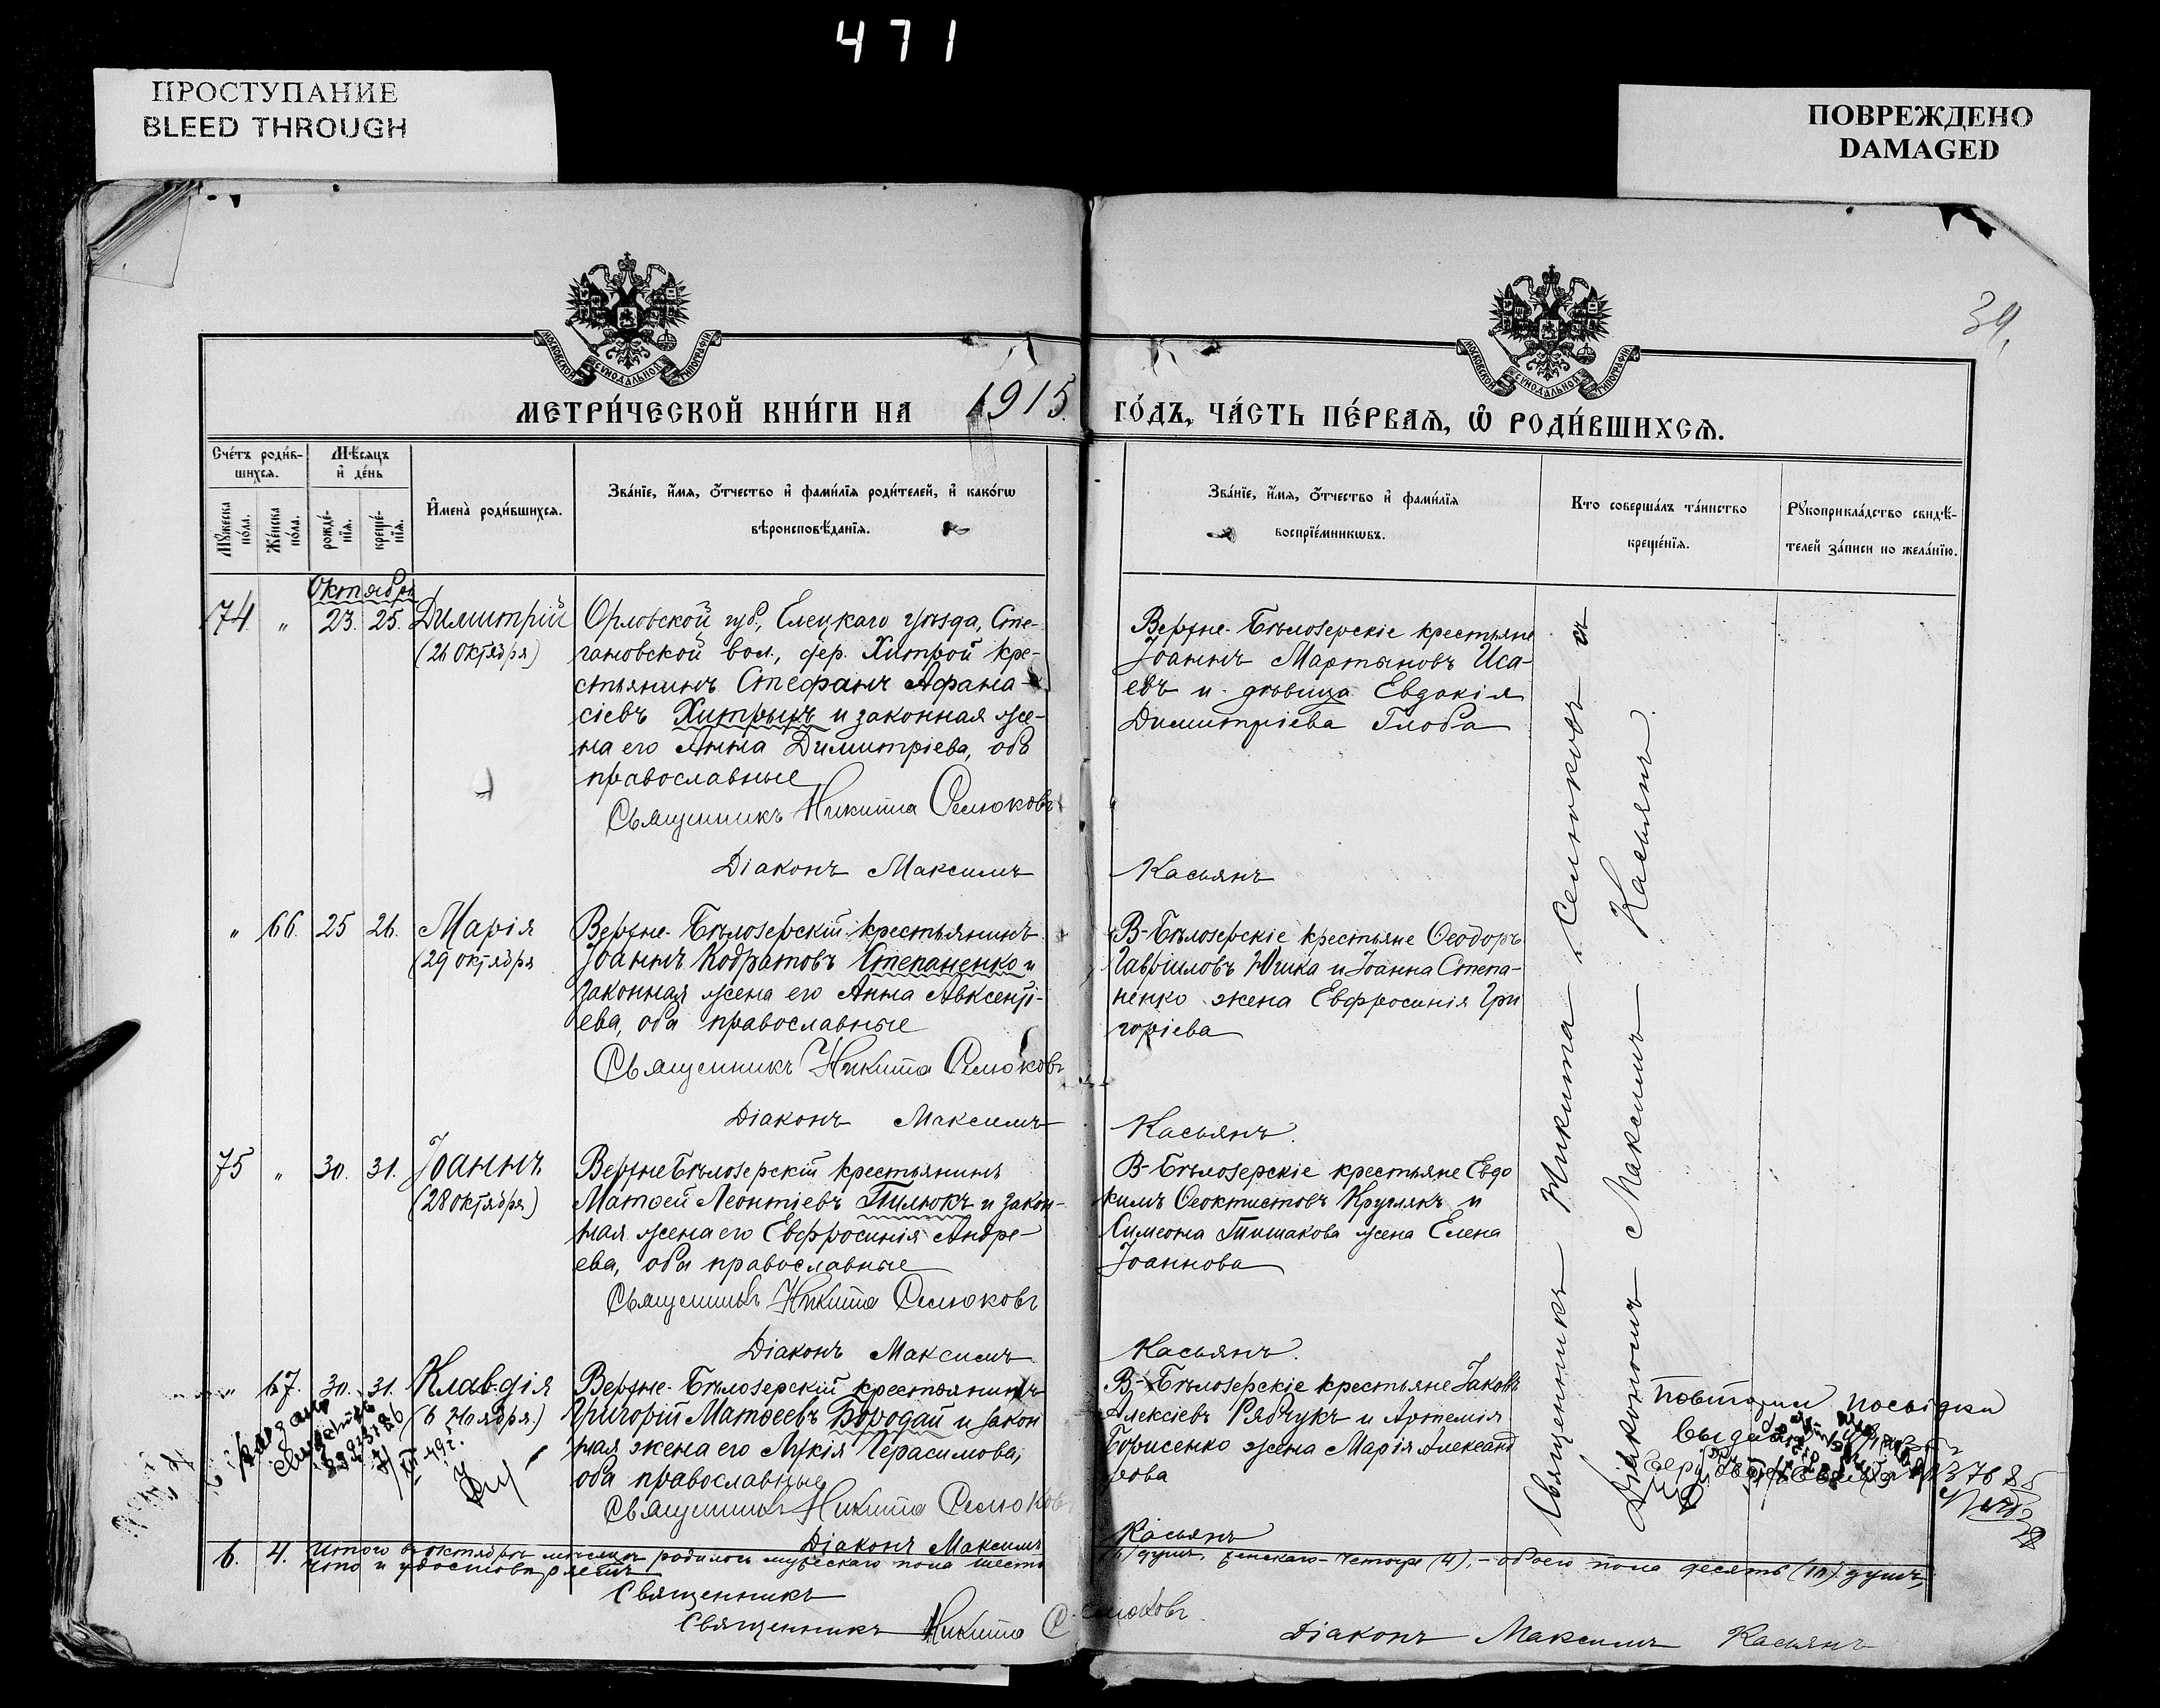 471
ПРОСТУПАНИЕ
BLEED THROUGH
ПОВРЕЖДЕНО
DAMAGED
39.
МОСКОВСКОЙ СѴНОДАЛЬНОЙ ТИПОГРАФІИ
МОСКОВСКОЙ СѴНОДАЛЬНОЙ ТИПОГРАФІИ
МЕТРИ́ЧЕСКОЙ КНИ́ГИ НА 1915 ГО́ДЪ, ЧА́СТЬ ПЕ́РВАѦ, Ѡ҆ РОДИ́ВШИХСѦ.
Сче́тъ роди́в-
шихся.
Мѣ́сяцъ
и҆ де́нь
Мꙋ́жеска по́ла.
Же́нска по́ла.
рожде́-
нїѧ.
креще́-
нїѧ.
И҆мена̀ роди́вшихся.
Зва́нїе, и҆́мѧ, ѻ҆́тчество и҆ фами́лїѧ роди́телей, и҆ како́гѡ
вѣроисповѣ́данїѧ.
Зва́нїе, и҆́мѧ, ѻ҆́тчество и҆ фами́лїѧ
воспрїе́мникѡвъ.
Кто соверша́лъ та́инство
креще́нїѧ.
Рꙋкоприкла́дство свидѣ́-
телей за́писи по жела́нїю.
Октябрь
74 " 23. 25. Димитрій
(26 Октября)
Орловской губ., Елецкаго уѣзда, Сте-
гановской вол., дер. Хитрой кре-
стьянинъ Стефанъ Афана-
сіевъ Хитрыхъ и законная же-
на его Анна Димитріева, оба
православные
Священникъ Никита Селюковъ
Діаконъ Максимъ Касьянъ
Верхне-Бѣлозерскіе крестьяне
Іоаннъ Мартыновъ Иса-
евъ и дѣвица Евдокія
Димитріева Глоба
" 66. 25 26. Марія
(29 октября
Верхне-Бѣлозерскій крестьянинъ
Іоаннъ Кодратовъ Степаненко и
законная жена его Анна Авксенті-
ева, оба православные
Священникъ Никита Селюковъ
Діаконъ Максимъ Касьянъ.
В-Бѣлозерскіе крестьяне Ѳеодоръ
Гавріиловъ Юшка и Іоанна Степа-
ненко жена Евфросинія Гри
горіева
75 " 30. 31. Іоаннъ
(28 октября)
Верхне Бѣлозерскій крестьянинъ
Матѳей Леонтіевъ Пилюкъ и закон-
ная жена его Евфросинія Андре-
ева, оба православные
Священникъ Никита Селюковъ
Діаконъ Максимъ Касьянъ.
В-Бѣлозерскіе крестьяне Евдо
кимъ Ѳеоктистовъ Круглякъ и
Симеона Пишакова жена Елена
Іоаннова
" 67. 30. 31. Клавдія
(6 Ноября.)
Верхне-Бѣлозерскій крестьянинъ
Григорій Матѳеевъ Бородай и закон
ная жена его Лукія Герасимова,
оба православные
Священникъ Никита Селюковъ
Діаконъ Максимъ Касьянъ
В-Бѣлозерскіе крестьяне Іаковъ
Алексіевъ Рябчукъ и Артемія
Борисенко жена Марія Александ
рова
Священникъ Никита Селюковъ съ
Діакономъ Максимъ Касьянъ.
6. 4. Итого въ октябрѣ мѣсяцѣ родилось мужескаго пола шесть (6) душъ, женскаго-четыре (4),-обоего пола десять (10) душъ,
что и удостовѣряемъ
Священникъ
Священникъ Никита Селюковъ.
Діаконъ Максимъ Касьянъ